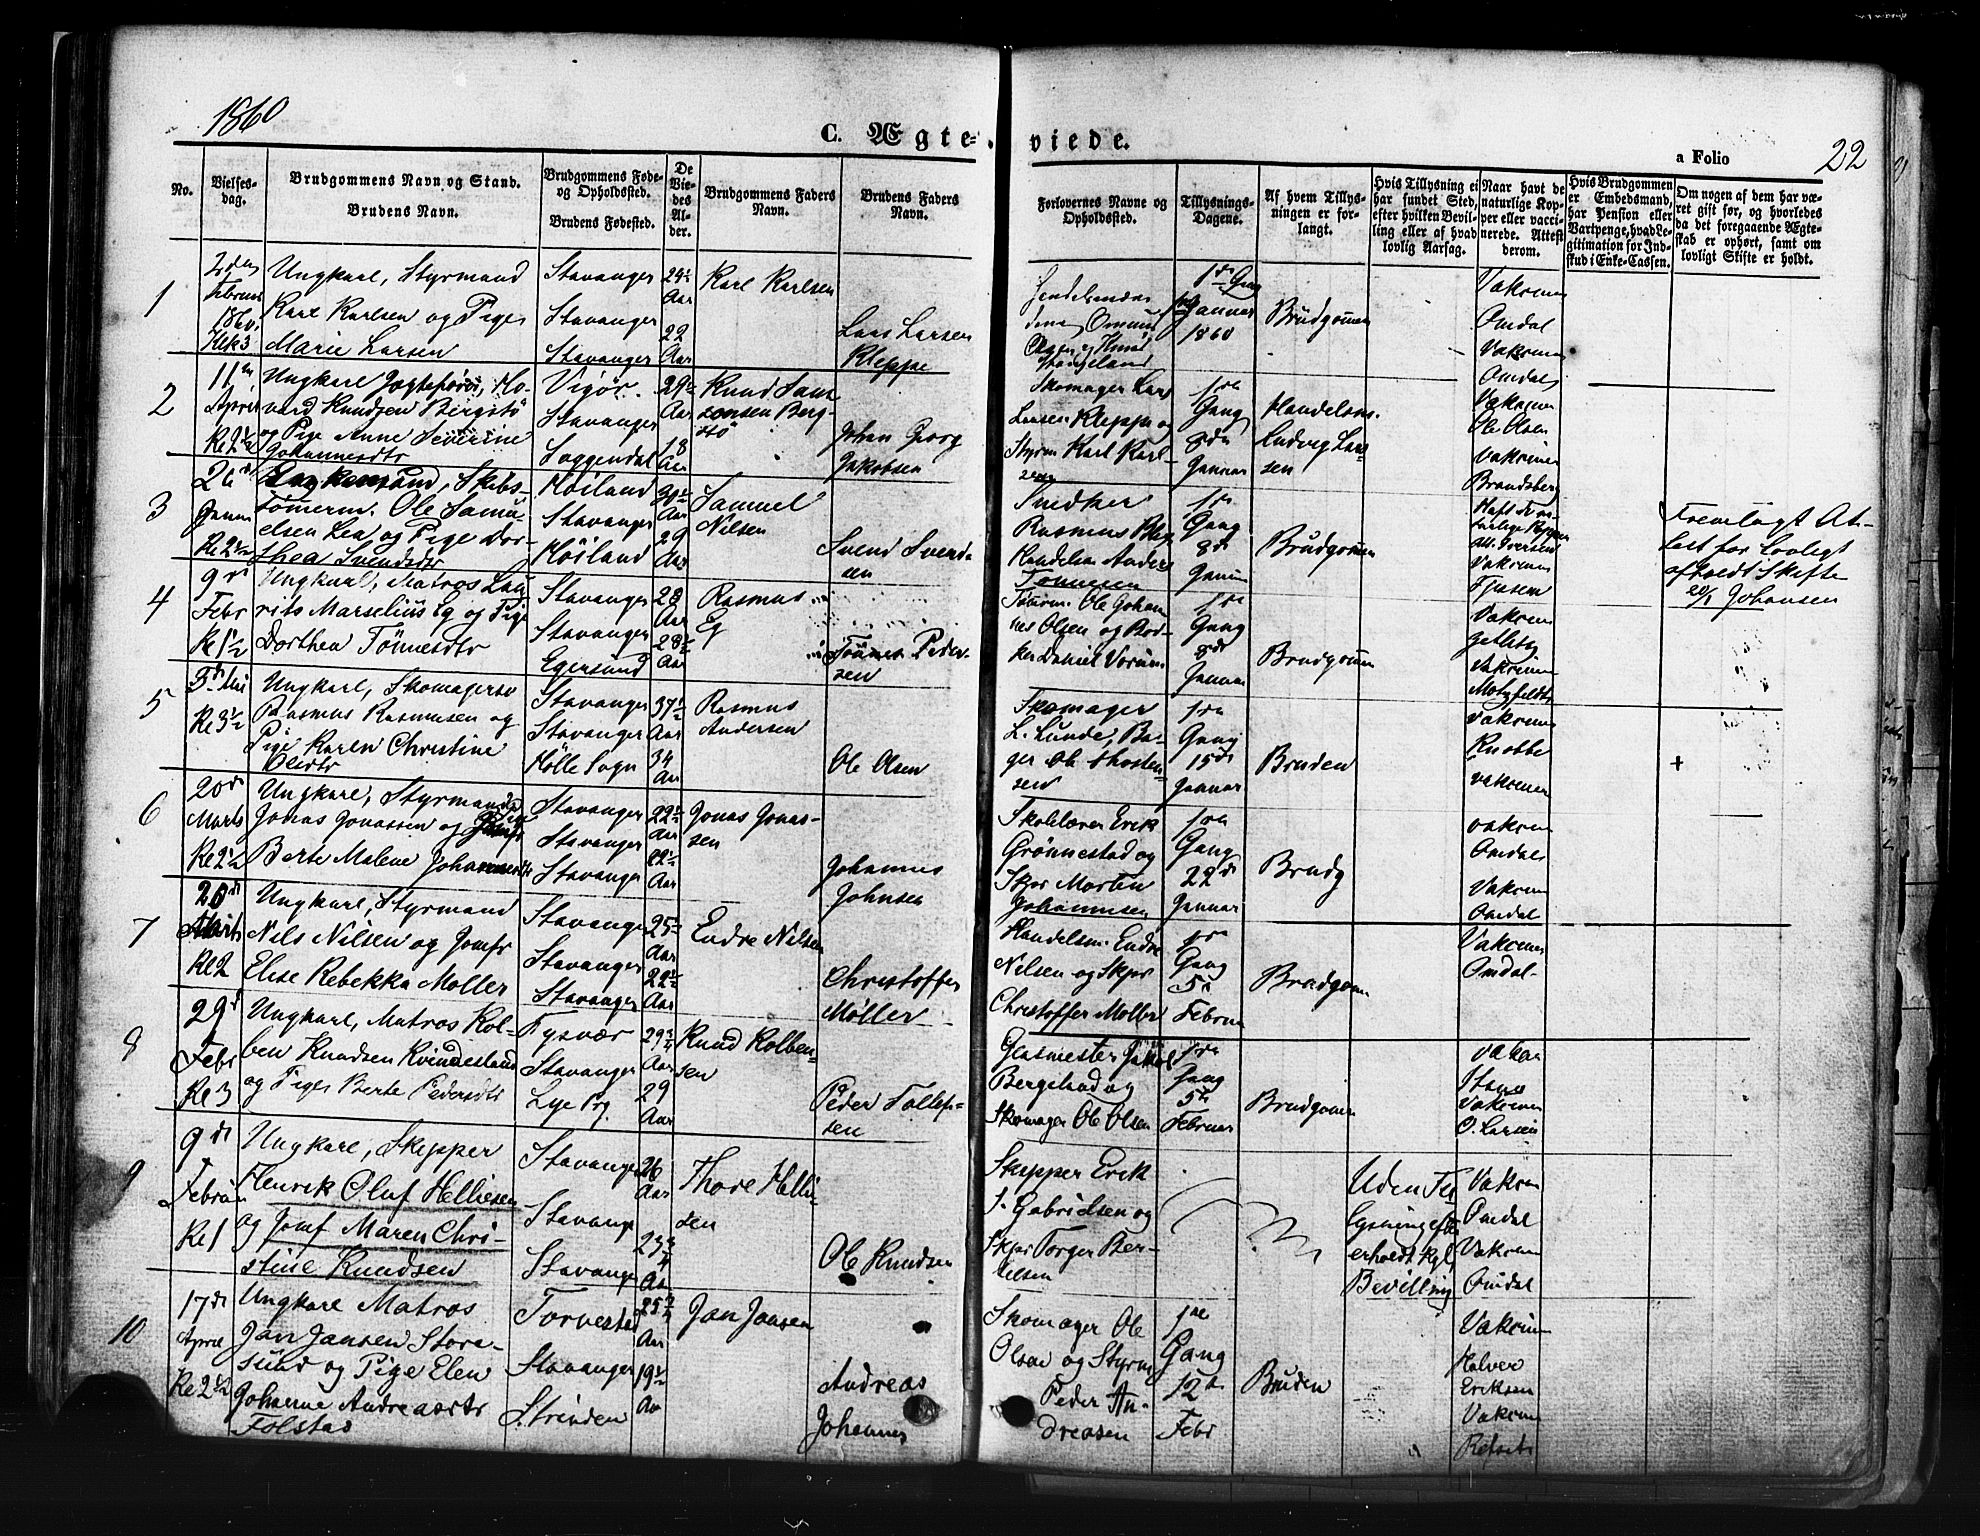 1860
C. Ægte-viede.
a Folio 22
No.
Vielses-dag.
Brudgommens Navn og Stand.
Brudens Navn.
Brudgommens Føde- og Opholdssted.
Brudens Fødested.
De Viedes Alder.
Brudgommens Faders Navn.
Brudens Faders Navn.
Forlovernes Navne og Opholdssted.
Tillysnings-Dagene.
Af hvem Tillysningen er forlangt.
Hvis Tillysning ei har fundet Sted, efter hvilken Bevilling eller af hvad lovlig Aarsag.
Naar havt de naturlige Kopper eller vaccinerede. Attest derom.
Hvis Brudgommen er Embedsmand, har Pension eller Vartpenge, hvad Legitimation for Indskud i Enke-Cassen.
Om nogen af dem har været gift før, og hvorledes da det foregaaende Ægteskab er ophørt, samt om lovligt Skifte er holdt.
1
2den
1860
Kl. 3
Ungkarl, Styrmand
Karl Karlsen og Pige
Marie Larsen
Stavanger
Stavanger
Stavanger
24½ Aar
22 Aar
Karl Karlsen
Lars Larsen
Kleppe
1ste Gang
Januar
1860
Brudgommen
Omdal
Omdal
2
11te
April
Kl 2½
Ungkarl Jagtefører, Ho-
vard Knudsen Bergstø
og Pige Anne Severine
Johannesdtr
Vigør.
Stavanger
Soggendal
29½ Aar
18 Aar
Knud Sam-
sonsen Berg-
stø
Johan Georg
Jakobsen
Skomager Lars
Larsen Kleppe og
Styrm Karl Karl-
sen
1ste
Gang
8de
Januar
Handelsm.
Ludvig Lar-
sen
Ole Olsen
Brandsberg
3
Kl 2½
Enkemand, Skibs-
Tømerm. Ole Samu-
elsen Lea og Pige Dor-
thea Svendsdtr
Høiland
Stavanger
Høiland
29 Aar
Samuel
Nilsen
Svend Svend-
sen
Snedker
Rasmus
Anders
Tønnesen
1ste
Gang
8de
Januar
Brudgommen
Fremlagt At-
test for lovligt
afholdt Skifte
Johansen
4
9de
Febr
Kl 1½
Ungkarl, Matros Lau-
rits Marselius Eg og Pige
Dorthea Tønnesdtr
Stavanger
Stavanger
Egersund
28 Aar
28½ Aar
Rasmus
Eg
Tønnes Peder-
sen
Tømrm. Ole Johan-
nes Olsen og Bød-
ker Daniel
1ste
Gang
8de
Januar
Brudgommen
5
Kl 3½
Ungkarl, Skomagersv
Rasmus Rasmussen og
Pige Karen Christine
Olsdtr
Stavanger
Stavanger
Hølle Sogn
37½ Aar
34 Aar
Rasmus
Andersen
Ole Olsen
Skomager
L. Lunde, Ba-
ger Ole Thosten-
sen
1ste
Gang
15de
Januar
Bruden
6
20de
Marts
Kl 2½
Ungkarl, Styrmand
Jonas Jonassen og Pige
Berte Malene Johannesdtr
Stavanger
Stavanger
Stavanger
22½ Aar
22½ Aar
Jonas Jonas-
sen
Johannes
Johnsen
Skolelærer Erik
Grønnestad og
Skpr Morten
Johannesen
1ste
Gang
22de
Januar
Brudg
Omdal
Omdal
7
20de
Marts
Kl 2
Ungkarl, Styrmand
Nils Nilsen og Jomfr
Elise Rebekka Møller
Stavanger
Stavanger
Stavanger
25 Aar
22½ Aar
Endre Nilsen
Christoffer
Møller
Handelsm. Endre
Nilsen og Skpr
Christoffer Møller
1ste
Gang
5te
Februar
Brudgom
Omdal
8
29de
Febr
Kl 3
Ungkarl, Matros Kol-
ben Knudsen Kvindesland
og Pige Berte Pedersdtr
Tysvær
Stavanger
Lye Prg.
29 Aar
Knud Kolben-
sen
Peder Tollef-
sen
Glasmester
Bergstad og
Skomager Ole Olsen
1ste
Gang
5te
Februar
Brudgommen
O. Larsen
9
9de
Februar
Kl 1
Ungkarl, Skipper
Henrik Oluf Helliesen
og Jomf Maren Chri-
stine Knudsen
Stavanger
Stavang
Stavanger
26 Aar
23¾ Aar
Thore Hellie-
sen
Ole Knudsen
Skipper Erik
S. Gabrielsen og
Skpr Torger Ber-
telsen
Uden Til-
lysning efter
erholdt Kgl
Bevilling
Omdal
Omdal
10
17de
April
Kl 2½
Ungkarl Matros
Jan Jansen Store-
sund og Pige Elen
Johanne Andreasdtr
Folstad
Torvestad
Stavanger
Strinden
19½ Aar
Jan Jansen
Andreas
Johannes
Skomager Ole
Olsen og Styrm
Peder An-
dreasen
1ste
Gang
12te
Febr
Bruden
Halver
Eriksen